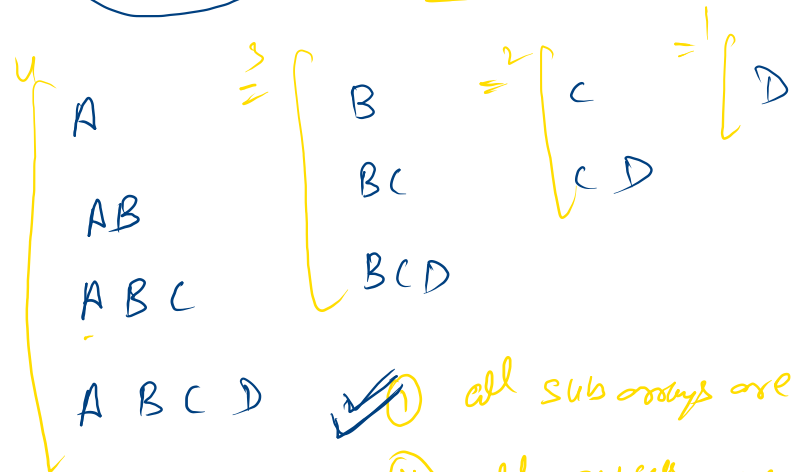 4
A
AB
A B C
A B C D
= 3
B
BC
BCD
= 2
C
C D
= 1
D
① all sub arrays are
all